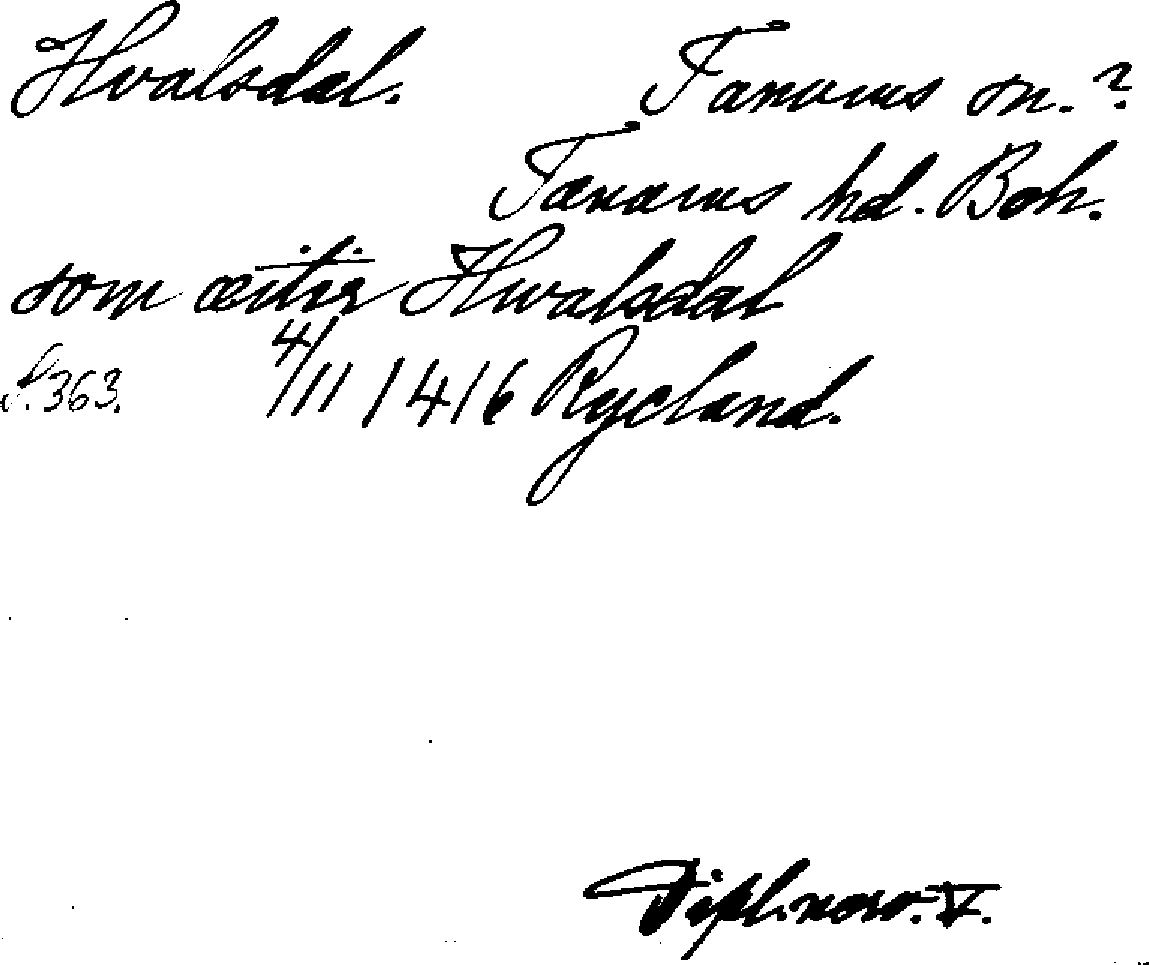 Hvalsdal. Tanums sn.?
Tanums hd. Boh.
som æitir Hwalsdal
s. 363. 4/11 1416 Rycland.
Dipl. norv. V.